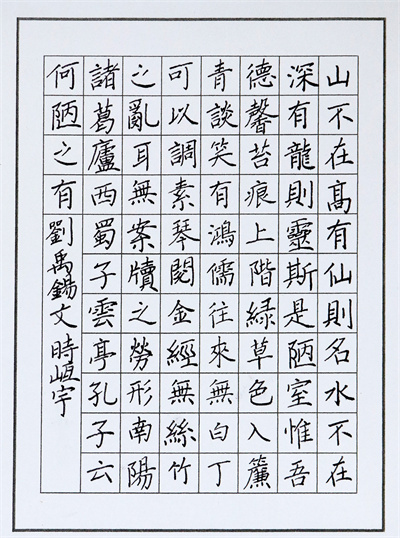 山不在高有仙則名水不在
深有龍則靈斯是陋室惟吾
德馨苔痕上階緑草色入簾
青談笑有鴻儒往來無白丁
可以調素琴閱金經無絲竹
之亂耳無案牘之勞形南陽
諸葛廬西蜀子雲亭孔子云
何陋之有 劉禹錫文 時峘宇